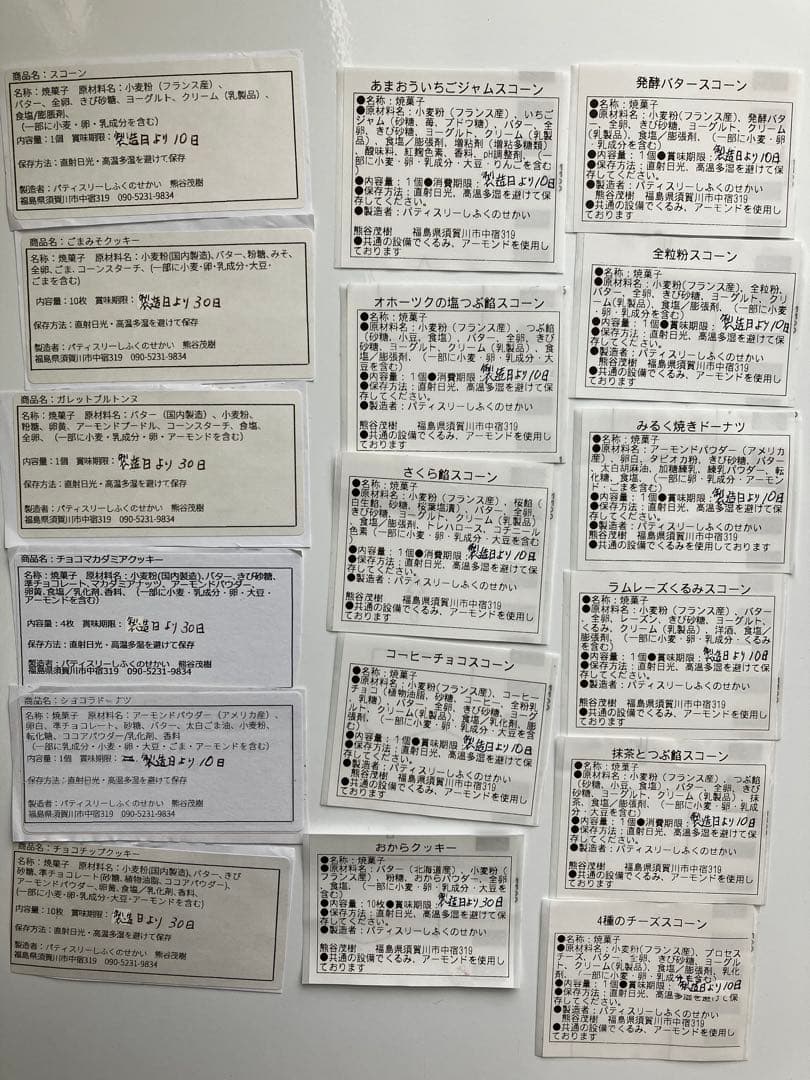 商品名：スコーン
名称：焼菓子　原材料名：小麦粉（フランス産）、
バター、全卵、きび砂糖、ヨーグルト、クリーム（乳製品）、
食塩/膨張剤、
（一部に小麦・卵・乳成分を含む）
内容量：1個　賞味期限：製造日より10日
保存方法：直射日光・高温多湿を避けて保存
製造者：パティスリーしふくのせかい　熊谷茂樹
福島県須賀川市中宿319　090-5231-9834
商品名：ごまみそクッキー
名称：焼菓子　原材料名：小麦粉(国内製造)、バター、粉糖、みそ、
全卵、ごま、コーンスターチ、（一部に小麦・卵・乳成分・大豆・
ごまを含む）
内容量：10枚　賞味期限：製造日より30日
保存方法：直射日光・高温多湿を避けて保存
製造者：パティスリーしふくのせかい　熊谷茂樹
福島県須賀川市中宿319　090-5231-9834
商品名：ガレットブルトンヌ
名称：焼菓子　原材料名：バター（国内製造）、小麦粉、
粉糖、卵黄、アーモンドプードル、コーンスターチ、食塩、
全卵、（一部に小麦・乳成分・卵・アーモンドを含む）
内容量：1個　賞味期限：製造日より30日
保存方法：直射日光・高温多湿を避けて保存
製造者：パティスリーしふくのせかい　熊谷茂樹
福島県須賀川市中宿319　090-5231-9834
商品名：チョコマカダミアクッキー
名称：焼菓子　原材料名：小麦粉(国内製造)、バター、きび砂糖、
準チョコレート、マカダミアナッツ、アーモンドパウダー、
卵黄、食塩/乳化剤、香料、（一部に小麦・乳成分・卵・大豆・
アーモンドを含む）
内容量：4枚　賞味期限：製造日より30日
保存方法：直射日光・高温多湿を避けて保存
製造者：パティスリーしふくのせかい　熊谷茂樹
福島県須賀川市中宿319　090-5231-9834
商品名：ショコラドーナツ
名称：焼菓子　原材料名：アーモンドパウダー（アメリカ産）、
卵白、準チョコレート、砂糖、バター、太白ごま油、小麦粉、
転化糖、ココアパウダー/乳化剤、香料
（一部に乳成分・小麦・卵・大豆・ごま・アーモンドを含む）
内容量：1個　賞味期限：製造日より10日
保存方法：直射日光・高温多湿を避けて保存
製造者：パティスリーしふくのせかい　熊谷茂樹
福島県須賀川市中宿319　090-5231-9834
商品名：チョコチップクッキー
名称：焼菓子　原材料名：小麦粉(国内製造)、バター、きび
砂糖、準チョコレート(砂糖、植物油脂、ココアパウダー)、
アーモンドパウダー、卵黄、食塩/乳化剤、香料、
(一部に小麦・卵・乳成分・大豆・アーモンドを含む)
内容量：10枚　賞味期限：製造日より30日
保存方法：直射日光・高温多湿を避けて保存
製造者：パティスリーしふくのせかい　熊谷茂樹
福島県須賀川市中宿319　090-5231-9834
あまおういちごジャムスコーン
●名称：焼菓子
●原材料名：小麦粉（フランス産）、いちご
ジャム（砂糖、苺、ブドウ糖）、バター、全
卵、きび砂糖、ヨーグルト、クリーム（乳製
品）、食塩／膨張剤、増粘剤（増粘多糖類）、
酸味料、紅麹色素、香料、pH調整剤、（一
部に小麦・卵・乳成分・大豆・りんごを含む）
●内容量：１個●消費期限：製造日より10日
●保存方法：直射日光、高温多湿を避けて保
存してください。
●製造者：パティスリーしふくのせかい
熊谷茂樹　福島県須賀川市中宿319
●共通の設備でくるみ、アーモンドを使用し
ております
オホーツクの塩つぶ餡スコーン
●名称：焼菓子
●原材料名：小麦粉（フランス産）、つぶ餡
（砂糖、小豆、食塩）、バター、全卵、きび
砂糖、ヨーグルト、クリーム（乳製品）、食
塩／膨張剤、（一部に小麦・卵・乳成分・大
豆を含む）
●内容量：１個●消費期限：製造日より10日
●保存方法：直射日光、高温多湿を避けて保
存してください。
●製造者：パティスリーしふくのせかい
熊谷茂樹　福島県須賀川市中宿319
●共通の設備でくるみ、アーモンドを使用し
ております
さくら餡スコーン
●名称：焼菓子
●原材料名：小麦粉（フランス産）、桜餡（
白生餡、砂糖、桜葉塩漬）、バター、全卵、
きび砂糖、ヨーグルト、クリーム（乳製品）
、食塩／膨張剤、トレハロース、コチニール
色素（一部に小麦・卵・乳成分・大豆を含む）
●内容量：１個●消費期限：製造日より10日
●保存方法：直射日光、高温多湿を避けて保
存してください。
●製造者：パティスリーしふくのせかい
熊谷茂樹　福島県須賀川市中宿319
●共通の設備でくるみ、アーモンドを使用し
ております
コーヒーチョコスコーン
●名称：焼菓子
●原材料名：小麦粉(フランス産)、コーヒー
チョコ（植物油脂、砂糖、コーヒー、全粉乳
）、バター、全卵、きび砂糖、ヨーグ
ルト、クリーム(乳製品)、食塩／乳化剤、膨
張剤、（一部に小麦・卵・乳成分・大豆を含
む）
●内容量：１個●賞味期限：製造日より10日
●保存方法：直射日光、高温多湿を避けて保
存してください。
●製造者：パティスリーしふくのせかい
熊谷茂樹　福島県須賀川市中宿319
●共通の設備でくるみ、アーモンドを使用し
ております
おからクッキー
●名称：焼菓子
●原材料名：バター（北海道産）、小麦粉（
フランス産）、粉糖、おからパウダー、全卵、
食塩、（一部に小麦・卵・乳成分・大豆を含
む）
●内容量：10枚●賞味期限：製造日より30日
●保存方法：直射日光、高温多湿を避けて保
存してください。
●製造者：パティスリーしふくのせかい
熊谷茂樹　福島県須賀川市中宿319
●共通の設備でくるみ、アーモンドを使用し
ております
発酵バタースコーン
●名称：焼菓子
●原材料名：小麦粉(フランス産)、発酵バタ
ー、全卵、きび砂糖、ヨーグルト、クリーム
(乳製品)、食塩／膨張剤、（一部に小麦・卵
・乳成分を含む）
●内容量：１個●賞味期限：製造日より10日
●保存方法：直射日光、高温多湿を避けて保
存してください。
●製造者：パティスリーしふくのせかい
熊谷茂樹　福島県須賀川市中宿319
●共通の設備でくるみ、アーモンドを使用し
ております
全粒粉スコーン
●名称：焼菓子
●原材料名：小麦粉(フランス産)、全粒粉、
バター、全卵、きび砂糖、ヨーグルト、クリ
ーム(乳製品)、食塩／膨張剤、（一部に小麦
・卵・乳成分を含む）
●内容量：１個●賞味期限：製造日より10日
●保存方法：直射日光、高温多湿を避けて保
存してください。
●製造者：パティスリーしふくのせかい
熊谷茂樹　福島県須賀川市中宿319
●共通の設備でくるみ、アーモンドを使用し
ております
みるく焼きドーナツ
●名称：焼菓子
●原材料名：アーモンドパウダー（アメリカ
産）、卵白、タピオカ粉、きび砂糖、バター
、太白胡麻油、加糖練乳、練乳パウダー、転
化糖、食塩、（一部に卵・乳成分・アーモン
ド・ごまを含む）
●内容量：１個●賞味期限：製造日より10日
●保存方法：直射日光、高温多湿を避けて保
存してください。
●製造者：パティスリーしふくのせかい
熊谷茂樹　福島県須賀川市中宿319
●共通の設備でくるみを使用しております
ラムレーズくるみスコーン
●名称：焼菓子
●原材料名：小麦粉（フランス産）、バター
、全卵、レーズン、きび砂糖、ヨーグルト、
くるみ、クリーム（乳製品）、洋酒、食塩／
膨張剤、（一部に小麦・卵・乳成分・くるみ
を含む）
●内容量：１個●賞味期限：製造日より10日
●保存方法：直射日光、高温多湿を避けて保
存してください。
●製造者：パティスリーしふくのせかい
熊谷茂樹　福島県須賀川市中宿319
●共通の設備でアーモンドを使用しておりま
す
抹茶とつぶ餡スコーン
●名称：焼菓子
●原材料名：小麦粉（フランス産）、つぶ餡
（砂糖、小豆、食塩）、バター、全卵、きび
砂糖、ヨーグルト、クリーム（乳製品）、抹
茶、食塩／膨張剤、（一部に小麦・卵・乳成
分・大豆を含む）
●内容量：１個●消費期限：製造日より10日
●保存方法：直射日光、高温多湿を避けて保
存してください。
●製造者：パティスリーしふくのせかい
熊谷茂樹　福島県須賀川市中宿319
●共通の設備でくるみ、アーモンドを使用し
ております
4種のチーズスコーン
●名称：焼菓子
●原材料名：小麦粉(フランス産)、プロセス
チーズ、バター、全卵、きび砂糖、ヨーグル
ト、クリーム(乳製品)、食塩／膨張剤、乳化
剤、（一部に小麦・卵・乳成分を含む）
●内容量：１個●賞味期限：製造日より10日
●保存方法：直射日光、高温多湿を避けて保
存してください。
●製造者：パティスリーしふくのせかい
熊谷茂樹　福島県須賀川市中宿319
●共通の設備でくるみ、アーモンドを使用し
ております